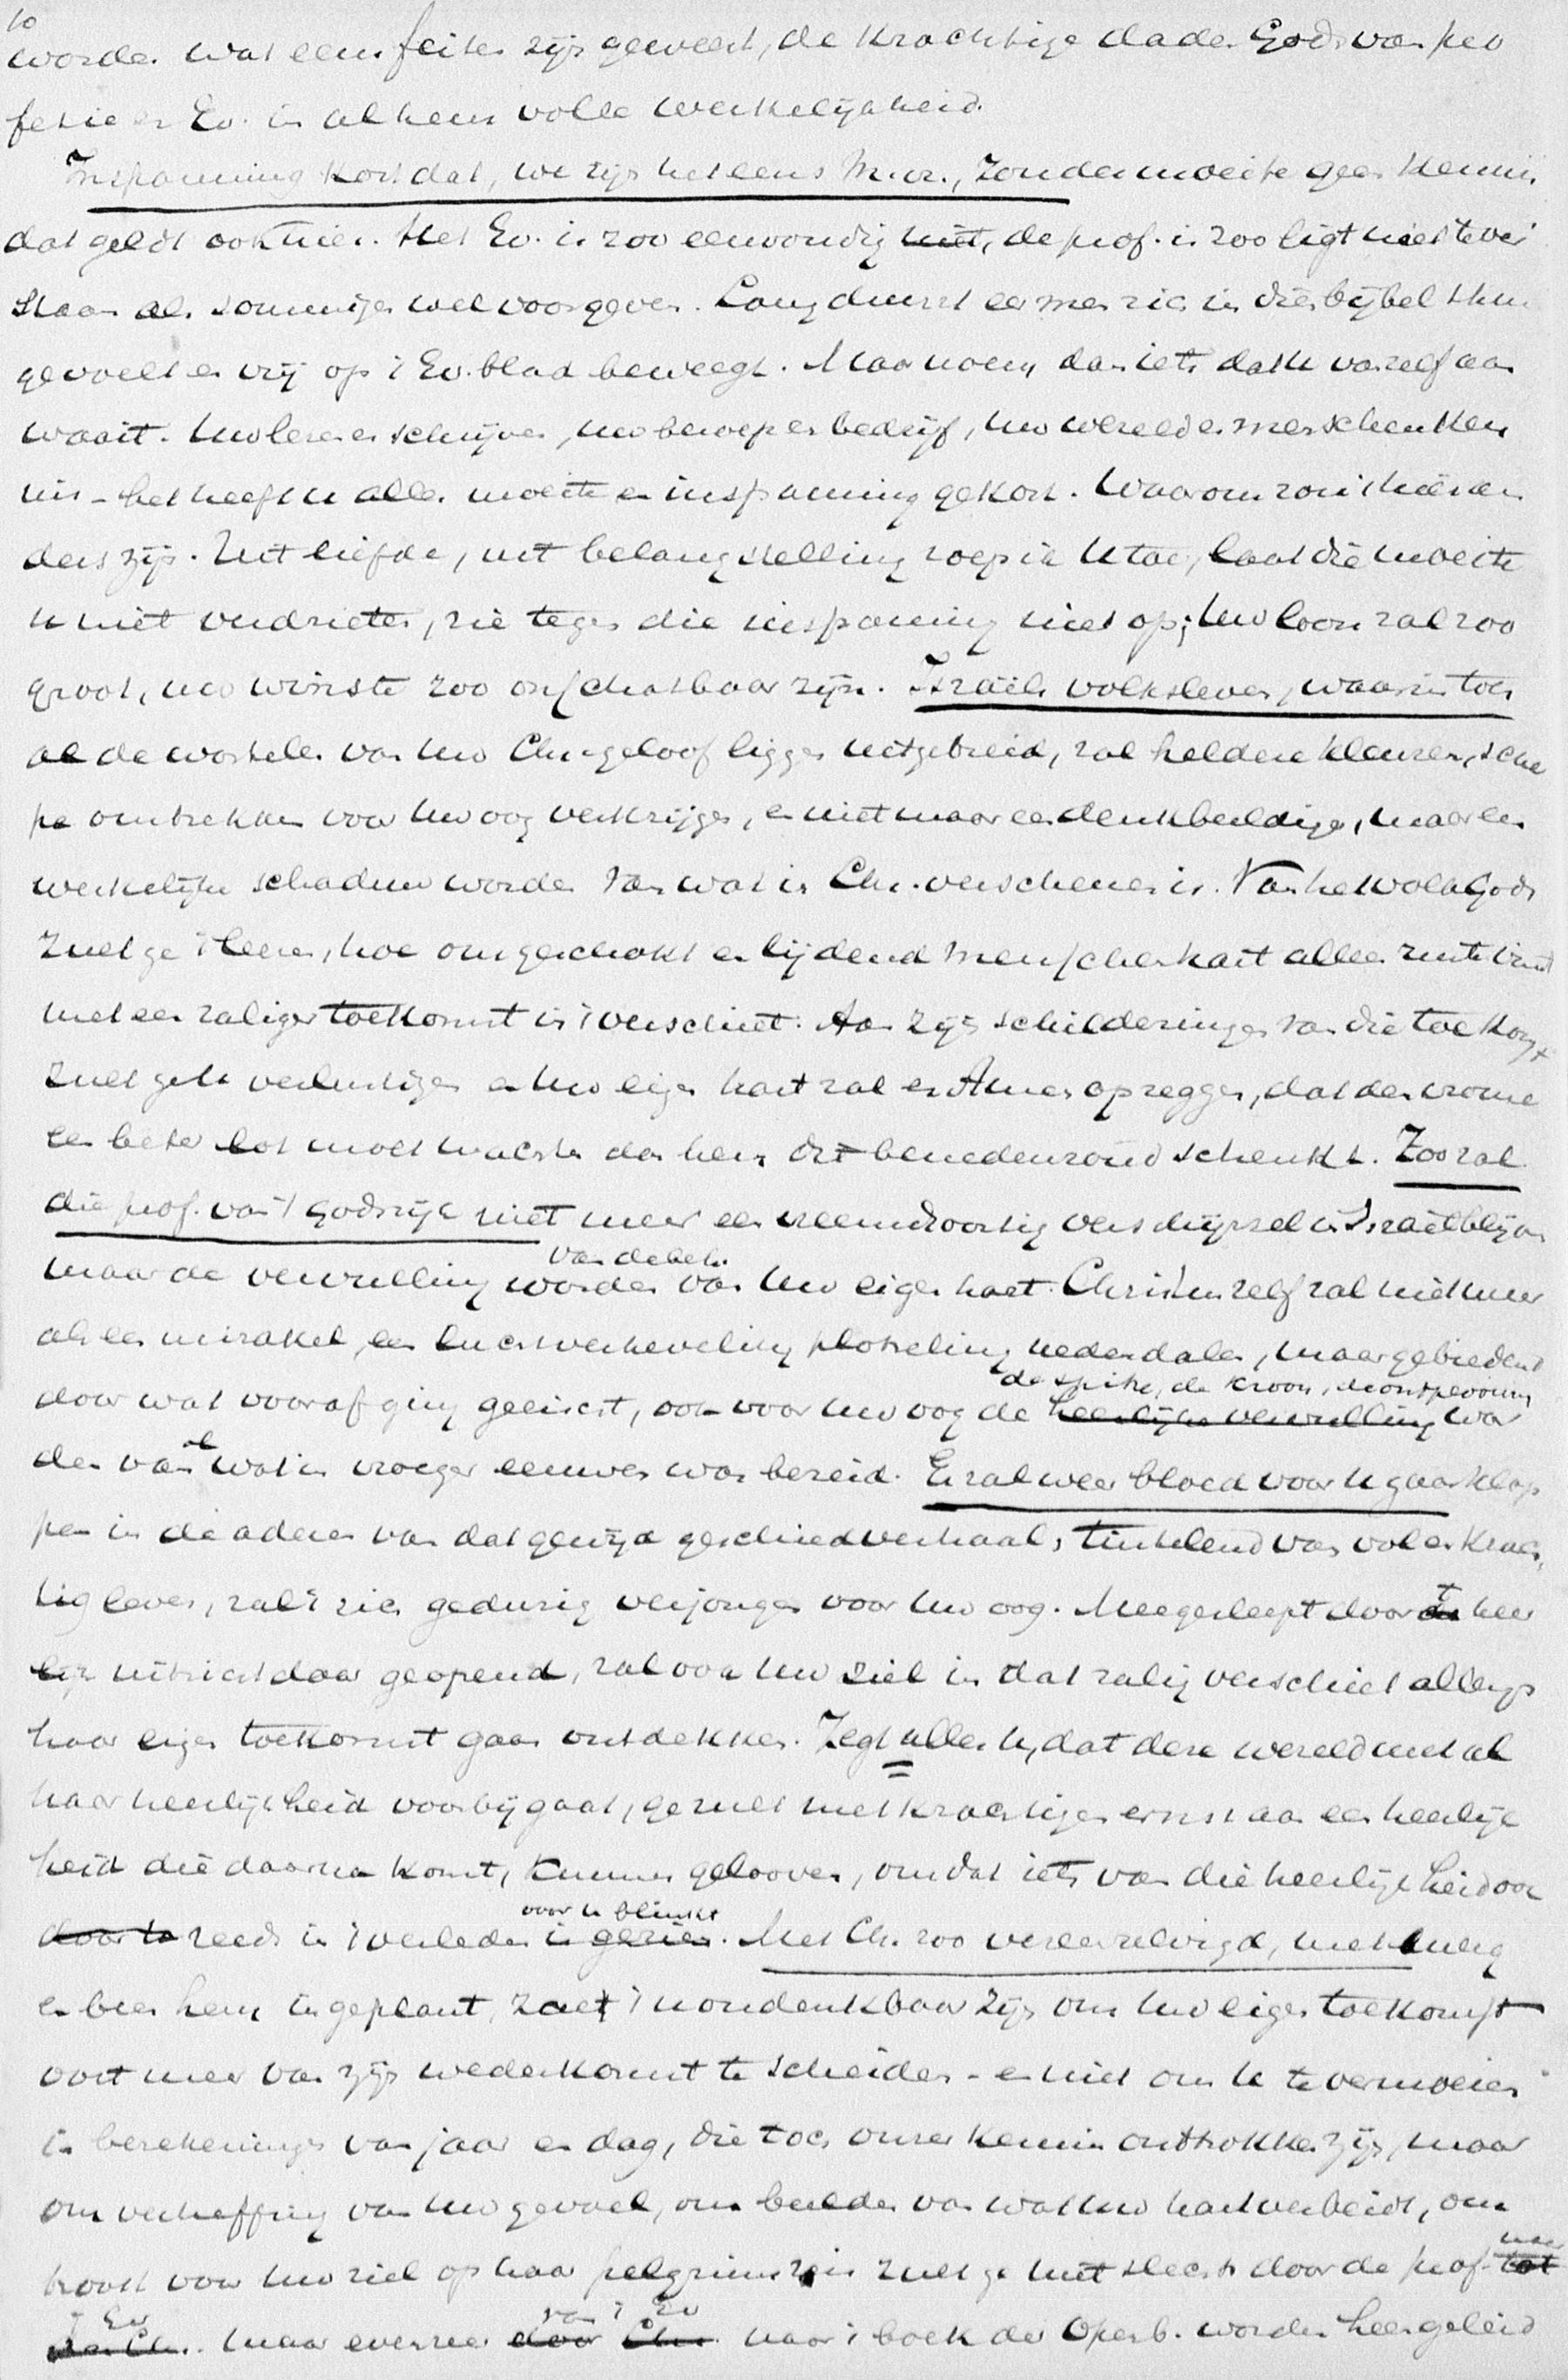 10
worden wat eens feiten zijn geweest, de krachtige daden Gods van pro
fetie en Ev. in al heur volle werkelijkheid.
Inspanning kost dat, we zijn het eens M.V., zonder moeite geen kennis,
dat geldt ook hier. Het Ev. is zoo eenvoudig niet, de prof. is zoo ligt niet te ver
staan als sommigen wel voorgeven. Lang duurt eer men zich in dien bijbel thuis
gevoelt en vrij op 't Ev. blad beweegt. Maar noem dan iets dat U vanzelf aan
waait. Uw lezen en schrijven, uw beroep en bedrijf, uw wereld en menschenken
nis - het heeft U alles moeite en inspanning gekost. Waarom zou 't hier an
ders zijn. Uit liefde, uit belangstelling roep ik U toe, laat die moeite
U niet verdrieten, zie tegen die inspanning niet op; Uw loon zal zoo
groot, uw winste zoo onschatbaar zijn. Israëls volksleven, waarin toch
al de wortelen van Uw Chr. geloof liggen uitgebreid, zal heldere kleuren, scher
pe omtrekken voor Uw oog verkrijgen, en niet maar een denkbeeldige, maar een
werkelijke schaduw worden van wat in Chr. verschenen is. Van het volk Gods
zult ge 't leeren, hoe omgeschokt en lijdend menschenhart alleen ruste vindt
met een zalige toekomst in 't verschiet. Aan zijn schilderingen van die toekomst
zult ge U verlustigen en Uw eigen hart zal er Amen op zeggen, dat den vrome
een beter lot moet wachten dan hem dit benedenrond schenkt. Zoo zal
die prof. van 't godsrijk niet meer een vreemdsoortig verschijnsel in Israël blijven
van de beh.
maar de vervulling worden van Uw eigen hart. Christus zelf zal niet meer
als een mirakel, een luchtverheveling plotseling nederdalen, maar gebiedend
de spits, de kroon, de ontplooiing
door wat vooraf ging geëischt, ook voor Uw oog de heerlijke vervulling wor
al
den van wat in vroeger eeuwen was bereid. Er zal weer bloed voor U gaan klop
pen in de aderen van dat gewijd geschiedverhaal, tintelend van vol en krach
tig leven, zal 't zich gedurig verjongen voor Uw oog. Meegesleept door 't heer
lijk uitzicht daar geopend, zal ook Uw ziel in dat zalig verschiet allengs
haar eigen toekomst gaan ontdekken. Zegt alles U, dat deze wereld met al
haar heerlijkheid voorbijgaat, ge zult met krachtigen ernst aan een heerlijk
heid die daarna komt, kunnen gelooven, omdat iets van die heerlijkheid ook
voor U blinkt
door U reeds in 't verleden is gezien. Met Chr. zoo vereenzelvigd, met Hem een
en in hem ingeplant, zal 't U ondenkbaar zijn om Uw eigen toekomst
ooit meer van zijn wederkomst te scheiden - en niet om U te vermoeien
in berekeningen van jaar en dag, die toch onzer kennis onttrokken zijn, maar
om verheffing van Uw gevoel, om beelden van wat Uw hart verbeidt, om
naar
troost voor Uw ziel op haar pelgrimsreis zult ge niet slechts door de prof. tot
't Ev van 't Ev
den Chr. maar evenzeer door Chr. naar 't boek der Openb. worden heengeleid